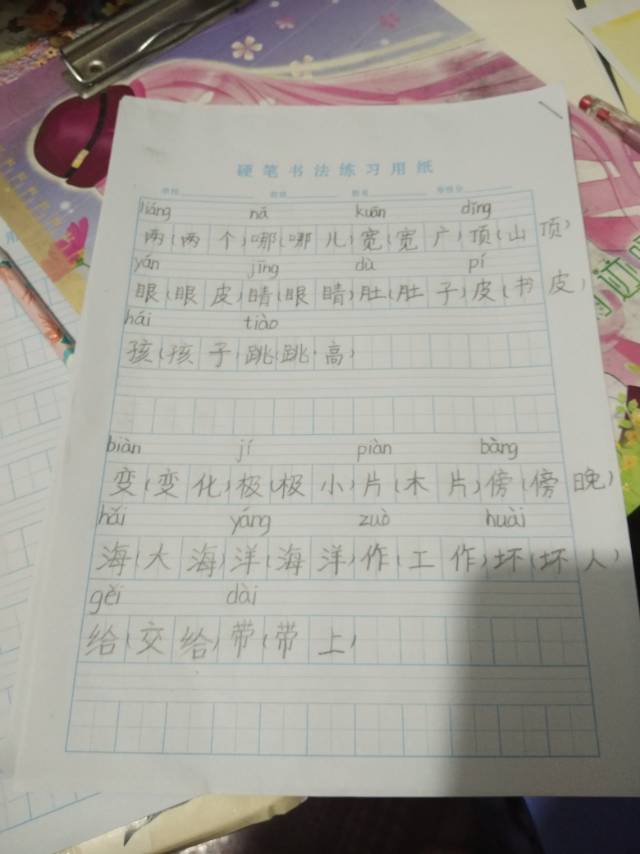 硬笔书法练习用纸
liáng nǎ kuān dǐng
两(两个)哪(哪儿)宽(宽广)顶(山顶)
yán jīng dù pí
眼(眼皮)睛(眼睛)肚(肚子)皮(书皮)
hái tiào
孩(孩子)跳(跳高)
biàn jí piàn bàng
变(变化)极(极小)片(木片)傍(傍晚)
hǎi yáng zuò huài
海(大海)洋(海洋)作(工作)坏(坏人)
gěi dài
给(交给)带(带上)